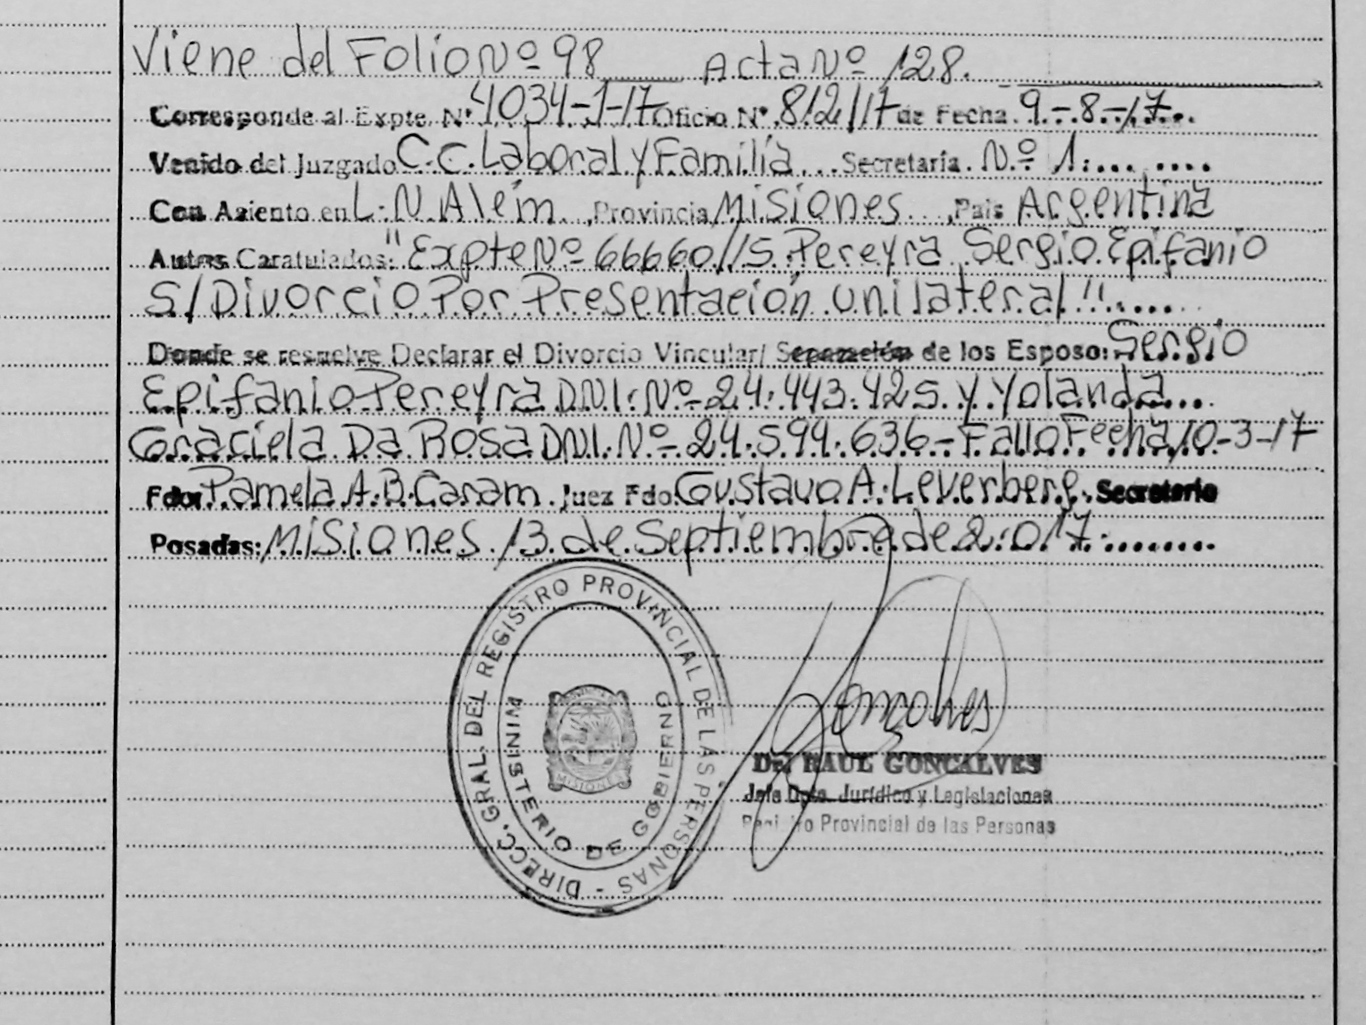 Viene del Folio Nº 98 ___ Acta Nº 128.
Corresponde al Expte. Nº 4034-1-17 Oficio Nº 812/17 de Fecha 9-8-17...
Venido del Juzgado C.C. Laboral y Familia... Secretaría. Nº 1.... ....
Con Asiento en L.N. Alem. Provincia Misiones..., País Argentina
Autos Caratulados: "Expte Nº 66660//S. Pereyra Sergio Epifanio
S/Divorcio Por Presentación unilateral"......
Donde se resuelve Declarar el Divorcio Vincular/ Separación de los Esposo: Sergio
Epifanio Pereyra D.N.I. Nº 24.443.425 y Yolanda...
Graciela Da Rosa DNI. Nº 24.594.636.- Fallo Fecha 10-3-17
Fdo: Pamela A.B. Caram. Juez Fdo. Gustavo A. Leverberg. Secretario
Posadas: Misiones 13 de Septiembre de 2.017.........
DIRECC. GRAL. DEL REGISTRO PROVINCIAL DE LAS PERSONAS -
MINISTERIO DE GOBIERNO
MISIONES
Goncalves
Dr. RAUL GONCALVES
Jefe Dpto. Jurídico y Legislaciones
Registro Provincial de las Personas